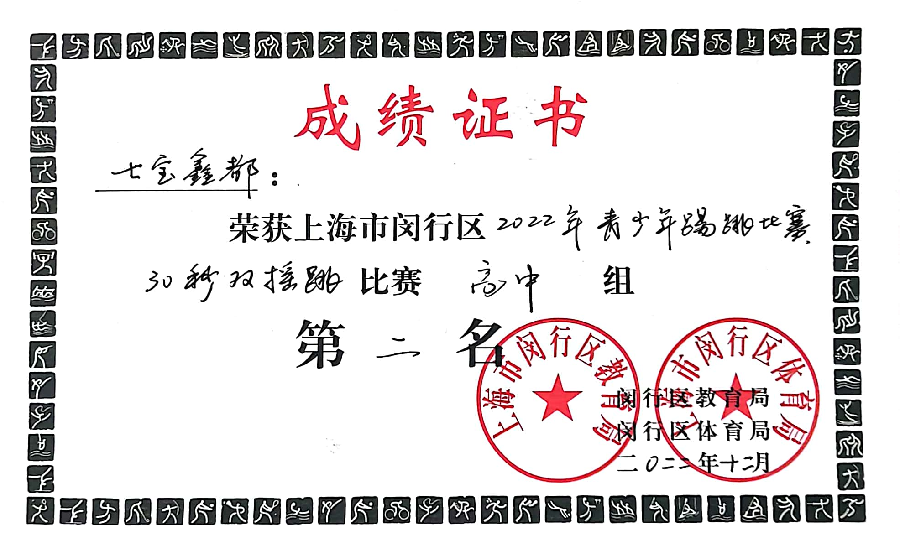 成绩证书
七宝鑫都：
荣获上海市闵行区2022年青少年踢跳比赛
30秒双摇跳比赛 高中 组
第 二 名
上海市闵行区教育局
上海市闵行区体育局
闵行区教育局
闵行区体育局
二〇二二年十二月